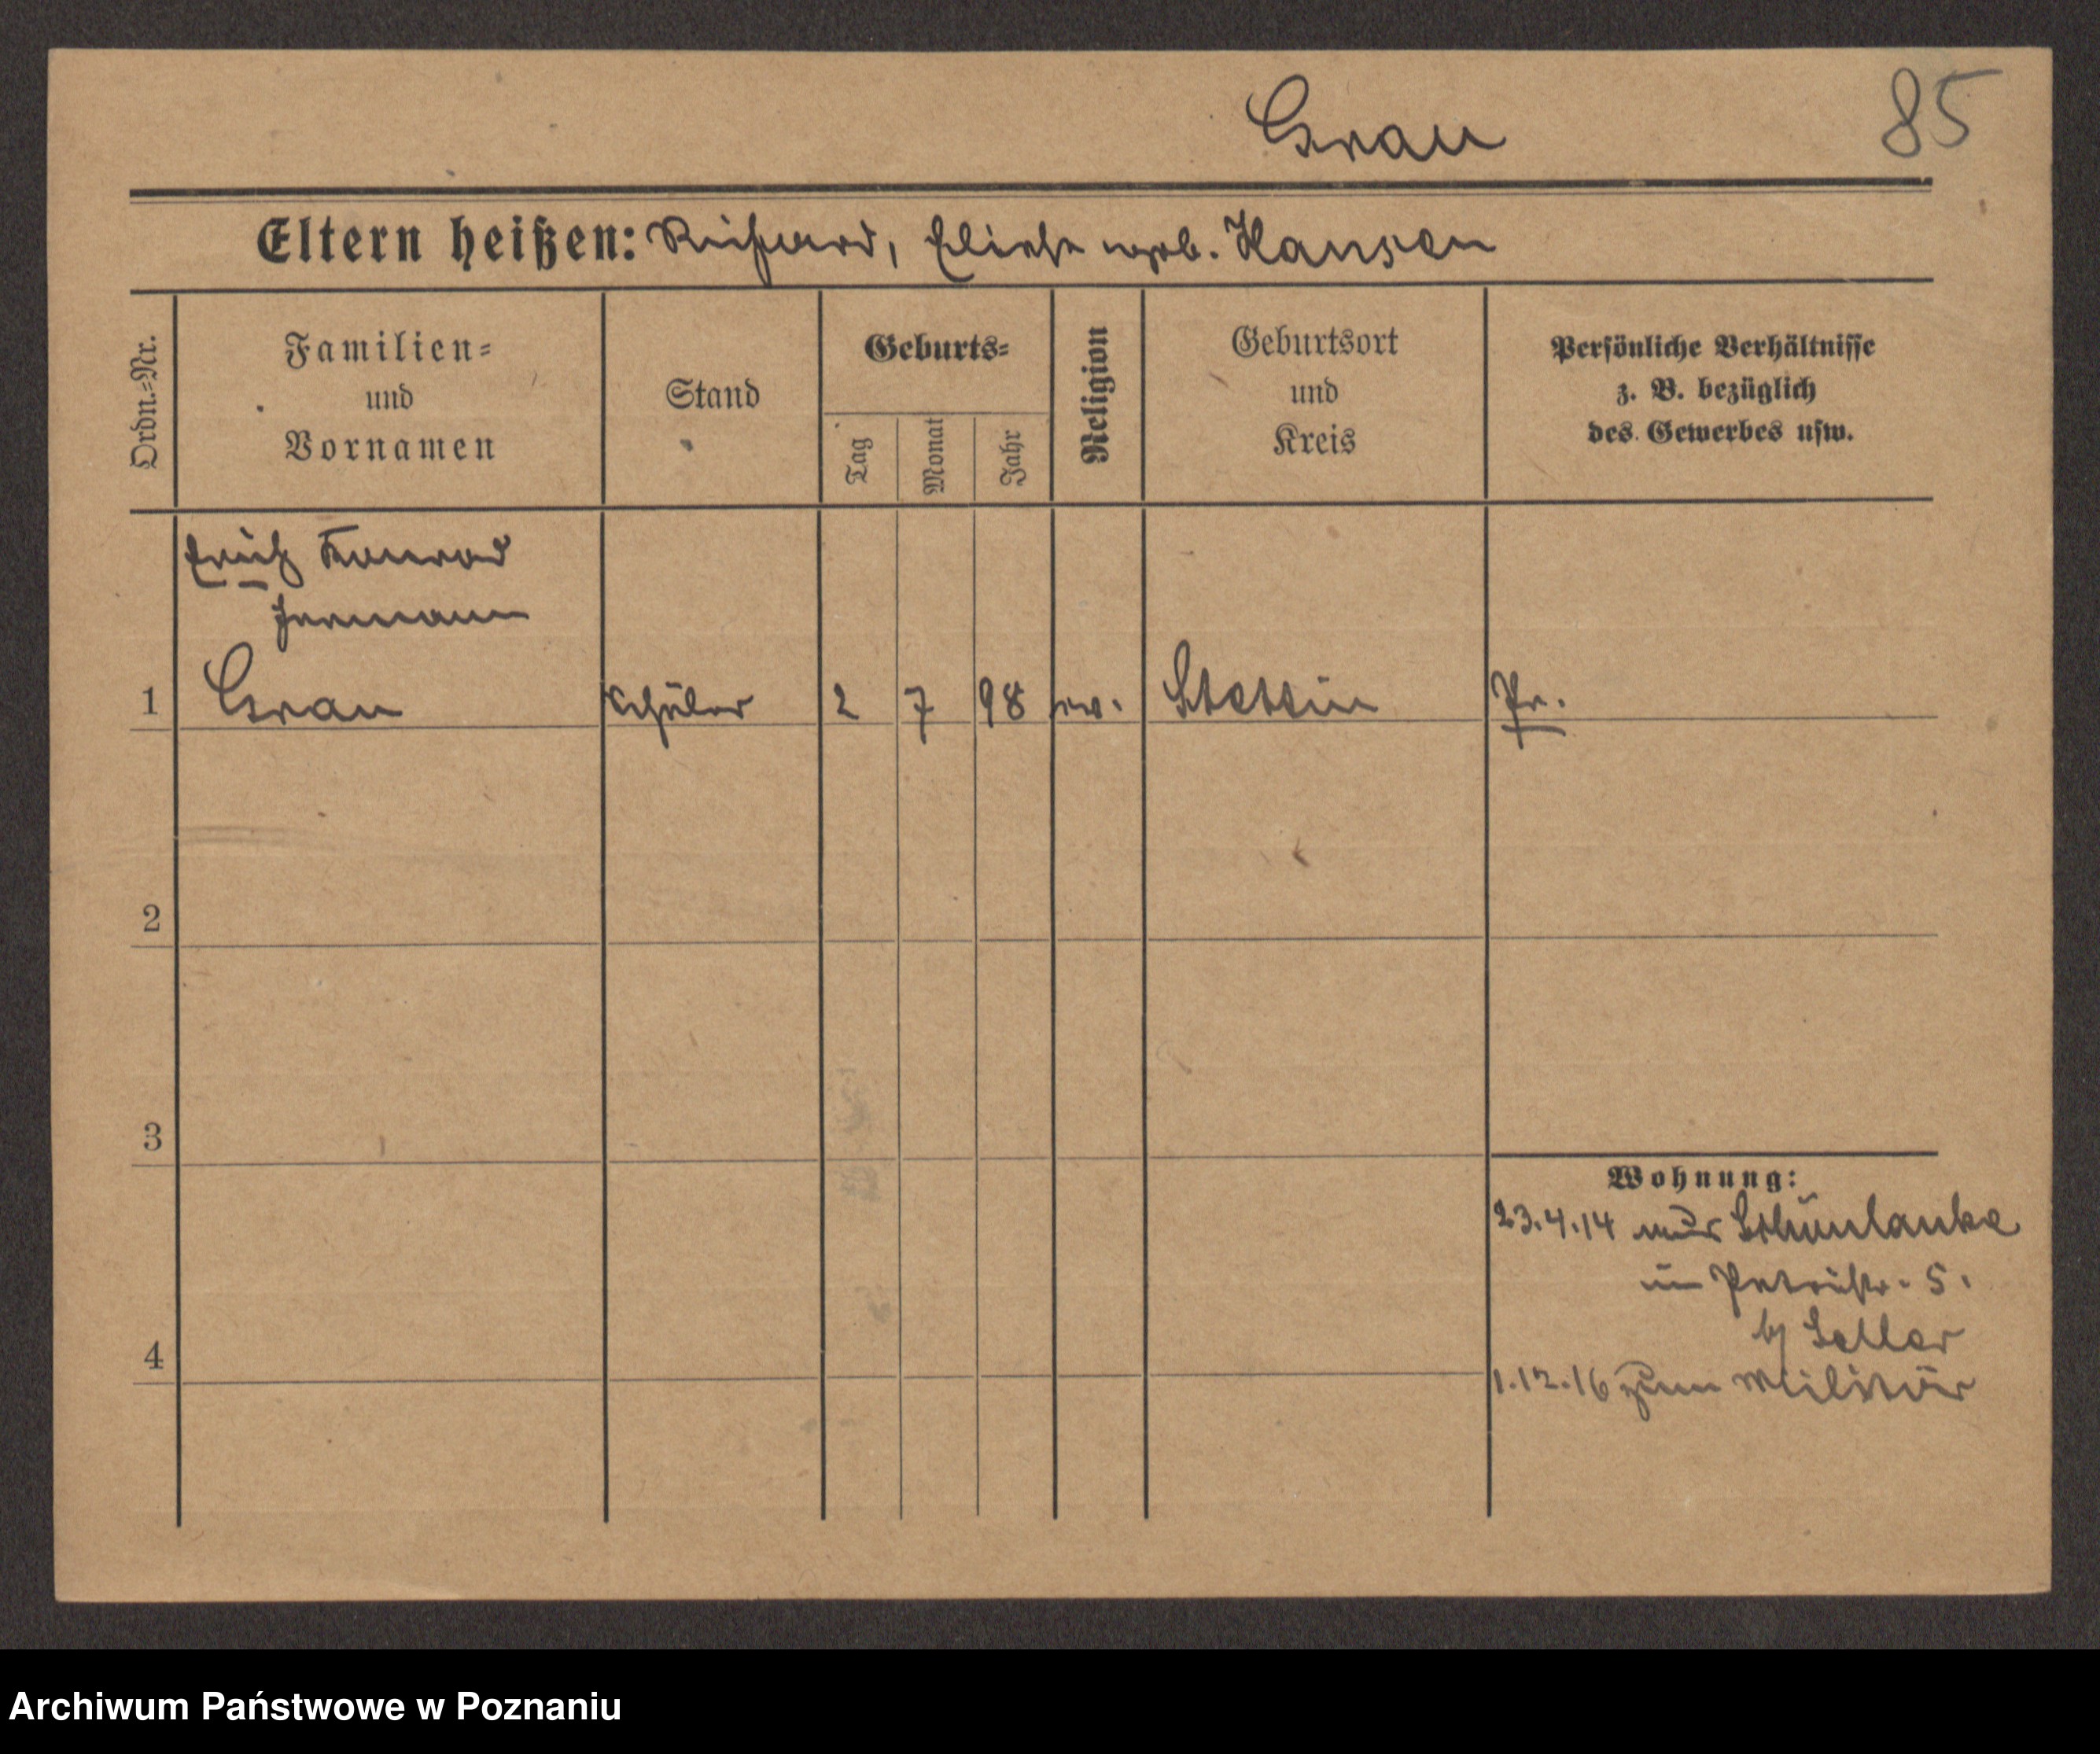 Grau
85
Eltern heißen: Richard, Eliese geb. Hansen
Ordn.=Nr.
Familien=
und
Vornamen
Stand
Geburts=
Tag
Monat
Jahr
Religion
Geburtsort
und
Kreis
Persönliche Verhältnisse
z. B. bezüglich
des Gewerbes usw.
Erich Konrad
Hermann
1 Grau Schüler 2 7 98 ev. Stettin Pr.
2
3
Wohnung:
23.4.14 aus Schönlanke
in Petristr. 5.
b/
4
1.12.16 zum Militär
Archiwum Państwowe w Poznaniu